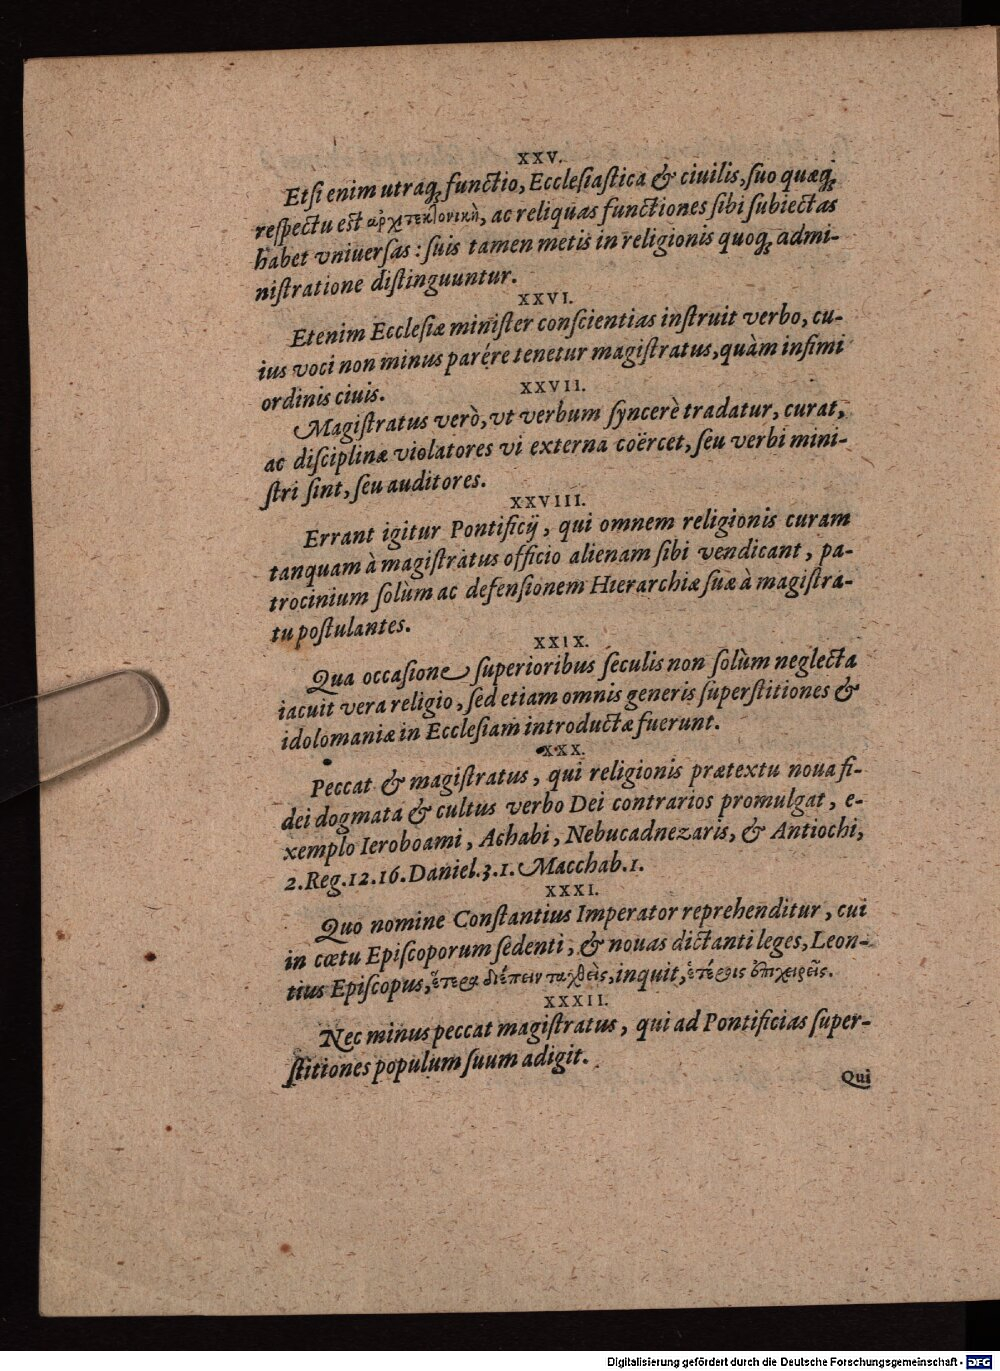 XXV.
Etſi enim utraqꝫ functio, Eccleſiaſtica & ciuilis, ſuo quæqꝫ
reſpectu est ἀρχιτεκτονικὴ, ac reliquas functiones ſibi ſubiectas
habet vniuerſas: ſuis tamen metis in religionis quoqꝫ admi-
niſtratione diſtinguuntur.
XXVI.
Etenim Eccleſiæ miniſter conſcientias inſtruit verbo, cu-
ius voci non minus parére tenetur magiſtratus, quàm infimi
ordinis ciuis.
XXVII.
Magiſtratus verò, vt verbum ſyncerè tradatur, curat,
ac diſciplinæ violatores vi externa coërcet, ſeu verbi mini-
ſtri ſint, ſeu auditores.
XXVIII.
Errant igitur Pontificij, qui omnem religionis curam
tanquam à magiſtratus officio alienam ſibi vendicant, pa-
trocinium ſolùm ac defenſionem Hierarchiæ ſuæ à magiſtra-
tu poſtulantes.
XXIX.
Qua occaſione ſuperioribus ſeculis non ſolùm neglecta
iacuit vera religio, ſed etiam omnis generis ſuperſtitiones &
idolomaniæ in Eccleſiam introductæ fuerunt.
XXX.
Peccat & magiſtratus, qui religionis prætextu noua fi-
dei dogmata & cultus verbo Dei contrarios promulgat, e-
xemplo Ieroboami, Achabi, Nebucadnezaris, & Antiochi,
2. Reg. 12. 16. Daniel. 3. 1. Macchab. 1.
XXXI.
Quo nomine Conſtantius Imperator reprehenditur, cui
in cœtu Epiſcoporum ſedenti, & nouas dictanti leges, Leon-
tius Epiſcopus, ἕτερα διέπειν ταχθεὶς, inquit, ἑτέροις ἐπιχειρεῖς.
XXXII.
Nec minus peccat magiſtratus, qui ad Pontificias ſuper-
ſtitiones populum ſuum adigit.
Qui
Digitalisierung gefördert durch die Deutsche Forschungsgemeinschaft - DFG